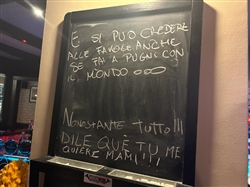 E SI PUÒ CREDERE
ALLE FAVOLE ANCHE
SE FAI A PUGNI CON
IL MONDO ooo
NONOSTANTE TUTTO!!!
DILE QUE TU ME
QUIERE MAMI!!!